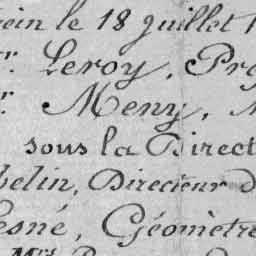 tein le 18 Juillet 1
r. Leroy, Pro
r. Meny,
sous la Direct
belin, Direcieur d
esné, Géomètre